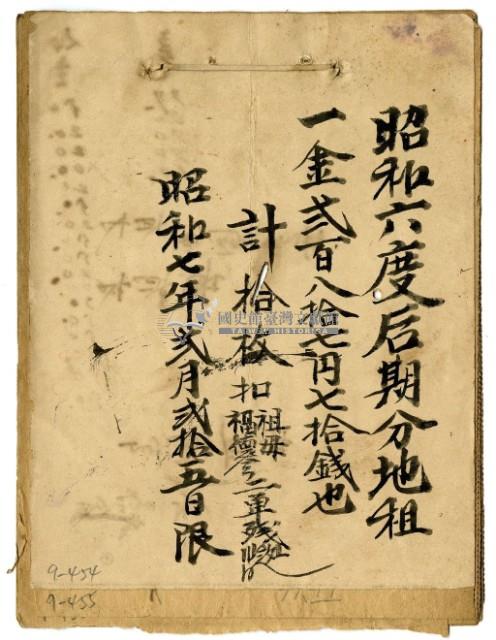 昭和六度后期分地租
一金弍百八拾七円七拾銭也
計拾枚扣祖母
福德
昭和七年弍月弍拾五日限
國史館臺灣文獻館
TAIWAN HISTORICA
9-454
9-455